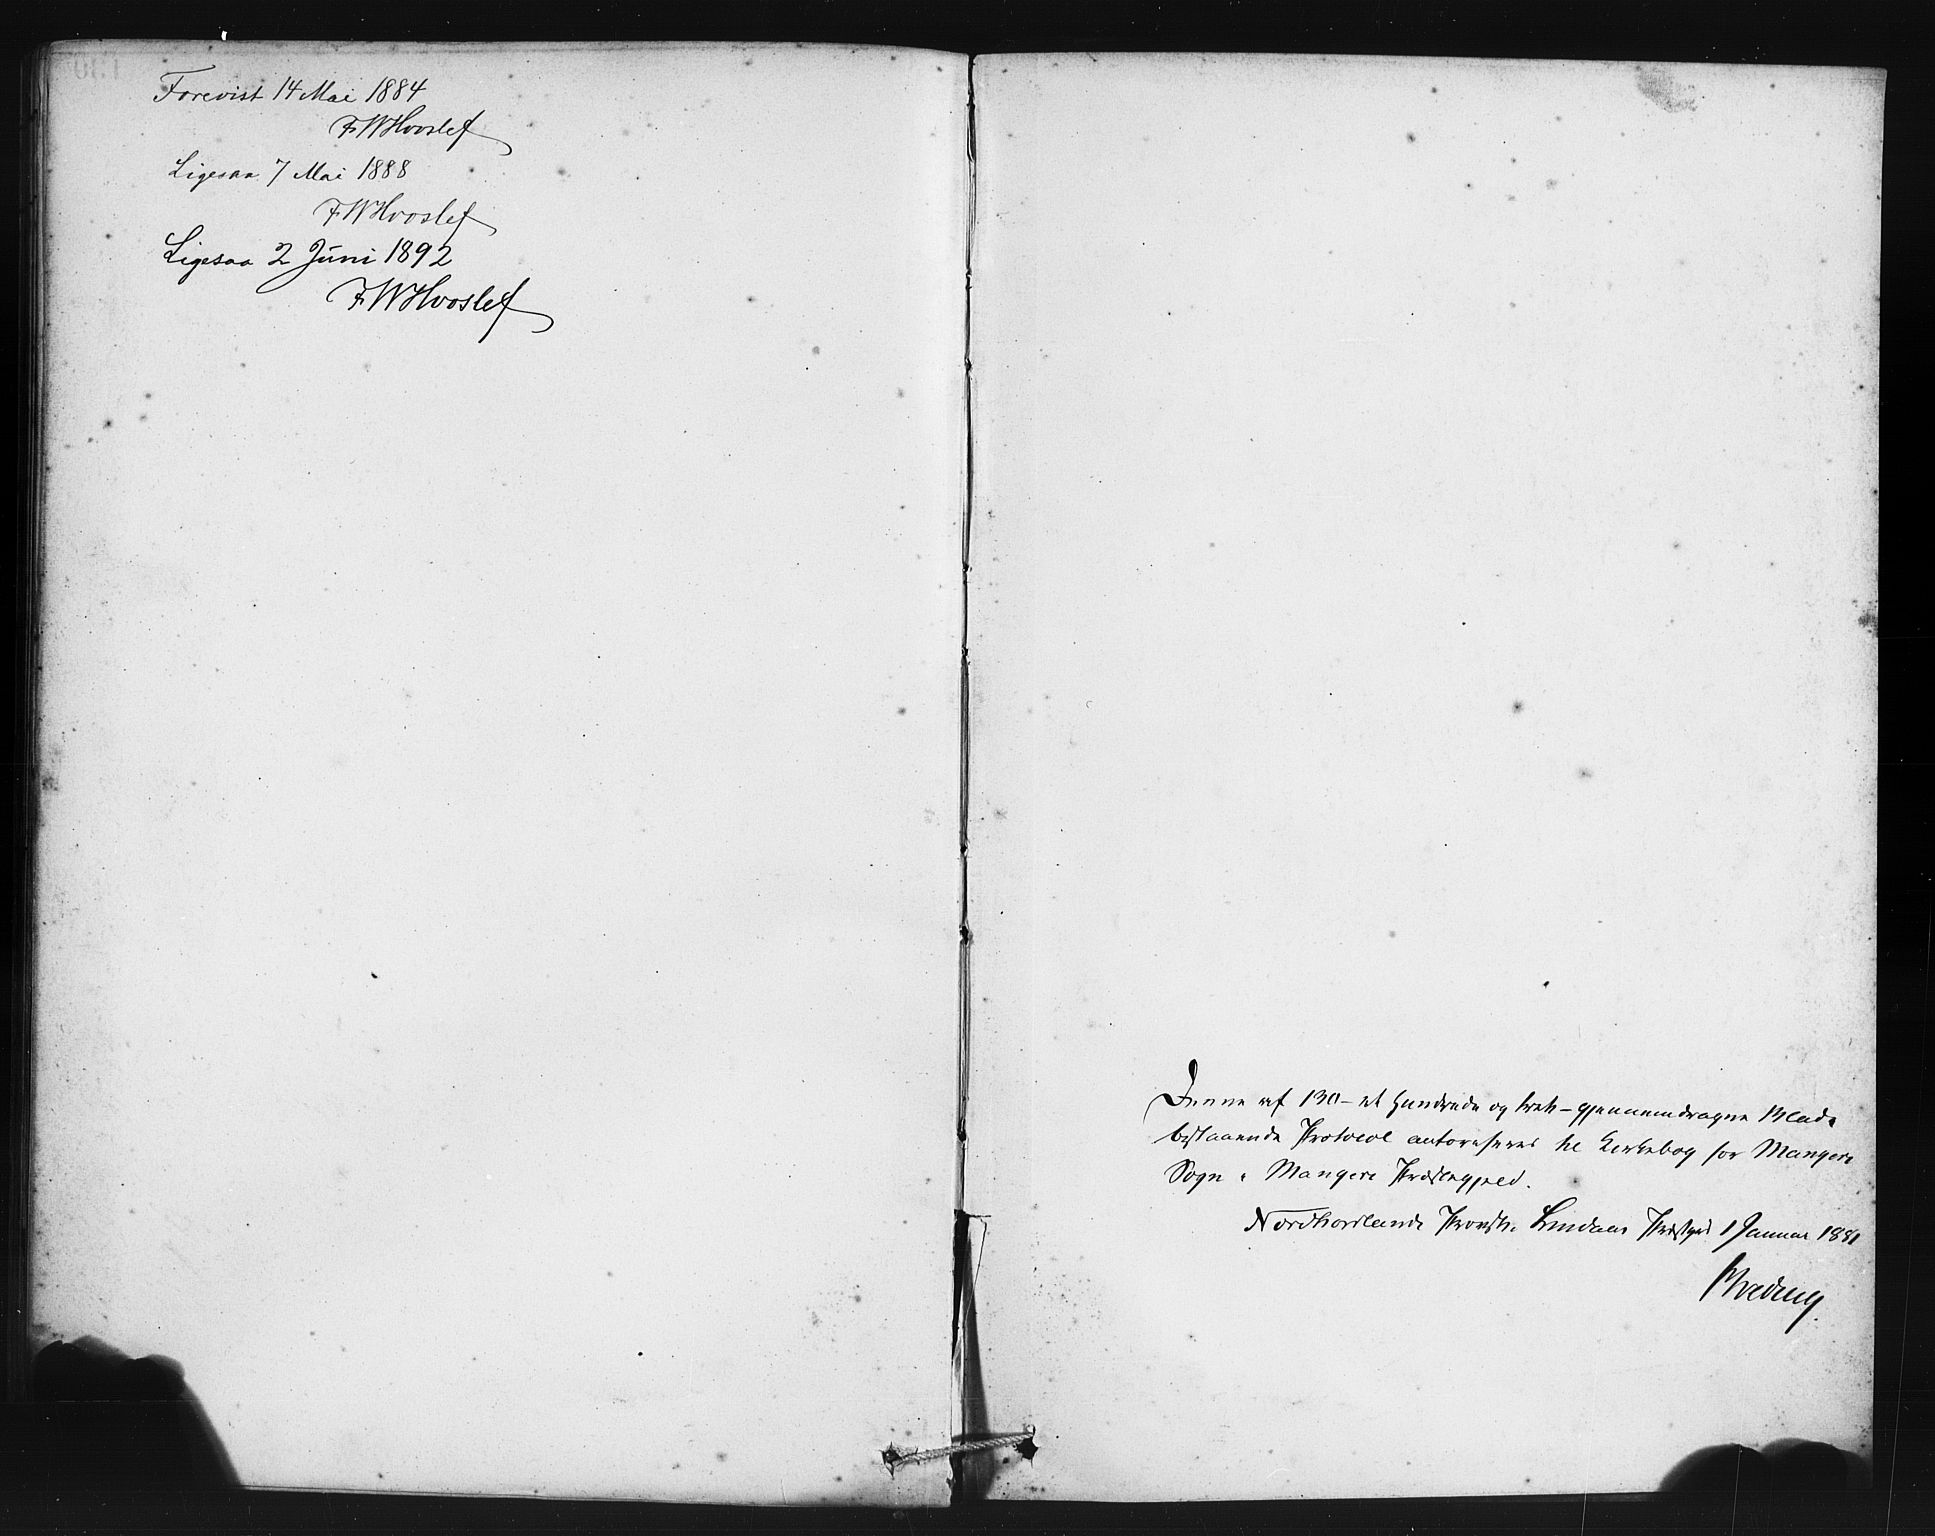 Forevist 14 Mai 1884
F.W.Hvoslef
Ligesaa 7 Mai 1888
F.W.Hvoslef
Ligesaa 2 Juni 1892
F.W.Hvoslef
Denne af 130 – et Hundrede og treti – gjennemdragne Blade
bestaaende Protocol autoriseres til Kirkebog for Mangers
Sogn i Mangers Præstegjeld.
Nordhordlands Provsti, Lindaas Præstgd 1 Januar 1881